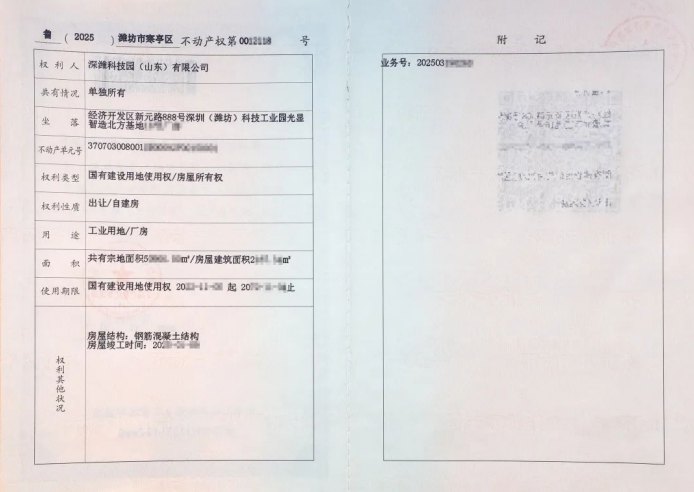 鲁（2025）潍坊市寒亭区 不动产权第00 号
权利人 深潍科技园（山东）有限公司
共有情况 单独所有
坐落 经济开发区新元路888号深圳（潍坊）科技工业园光显
智造北方基地
不动产单元号 370703008001
权利类型 国有建设用地使用权/房屋所有权
权利性质 出让/自建房
用途 工业用地/厂房
面积 共有宗地面积5 m²/房屋建筑面积2 m²
使用期限 国有建设用地使用权 20 起 20 止
权利其他状况
房屋结构：钢筋混凝土结构
房屋竣工时间：20
附记
业务号：202503